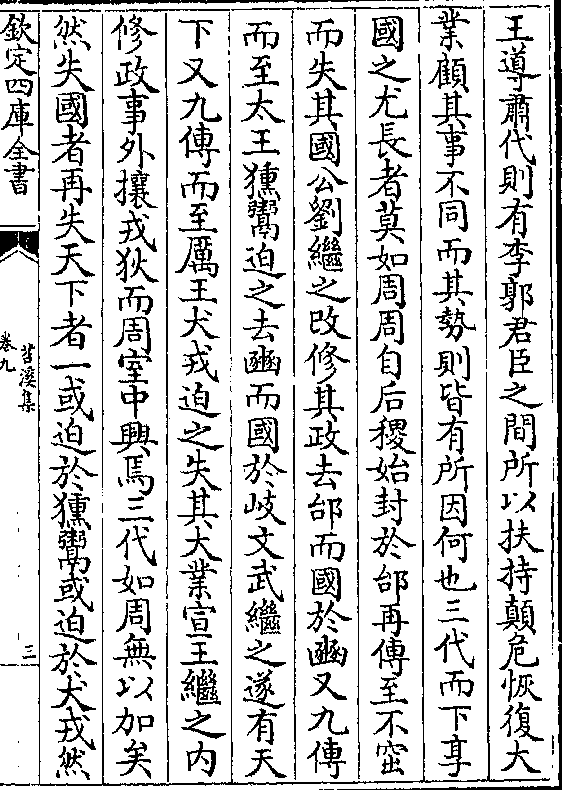 王導肅代則有李郭君臣之間所以扶持顛危恢復大
業顧其事不同而其勢則皆有所因何也三代而下享
國之尤長者莫如周周自后稷始封於邰再傳至不窋
而失其國公劉繼之改修其政去邰而國於豳又九傳
而至太王獯鬻迫之去豳而國於岐文武繼之遂有天
下又九傳而至厲王犬戎迫之失其大業宣王繼之内
修政事外攘戎狄而周室中興焉三代如周無以加矣
然失國者再失天下者一或迫於獯鬻或迫於犬戎然
欽定四庫全書
苕溪集
卷九
三